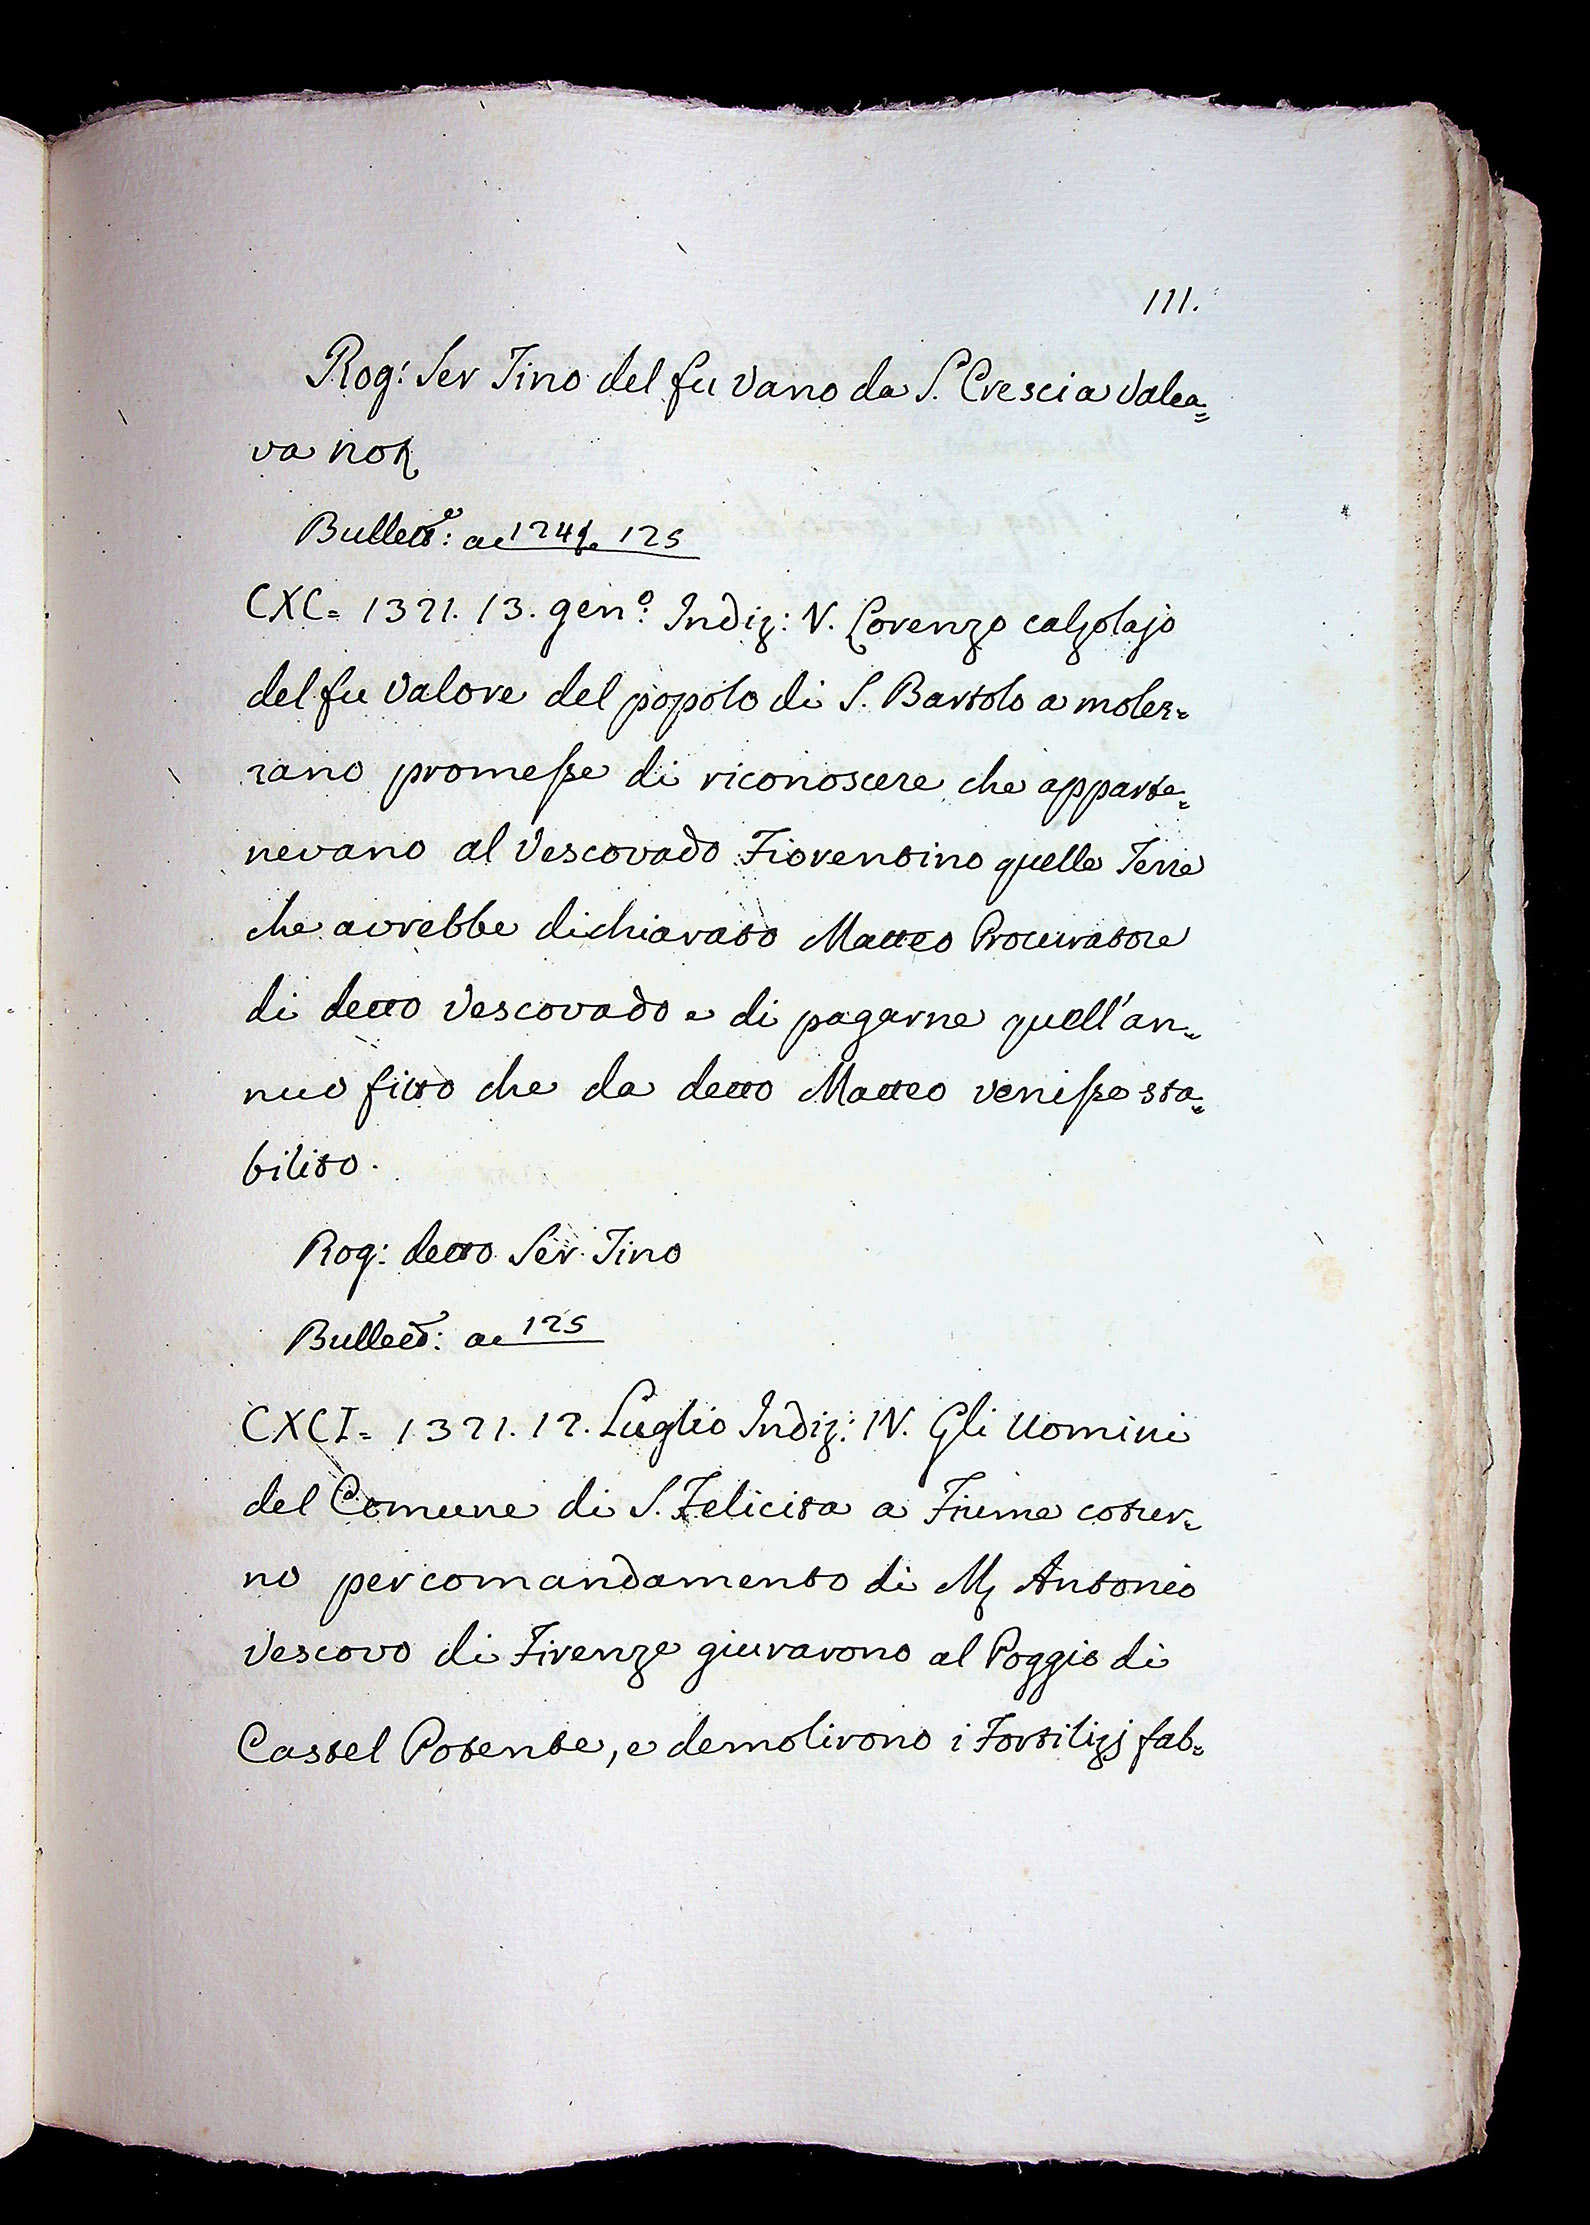 111.
Rog: Ser Tino del fu Vano da S. Crescia Valca=
va not
Bullett.e: ac 124 e 125
CXC= 1321. 13. gen.o Indiz: V. Lorenzo calzolajo
del fu Valore del popolo di S. Bartolo a molez=
zano promesse di riconoscere che apparte=
nevano al Vescovado Fiorentino quelle Terre
che avrebbe dichiarato Matteo Procuratore
di detto Vescovado e di pagarne quell'an=
nuo fitto che da detto Matteo venisse sta=
bilito.
Rog: detto Ser Tino
Bullett.e: ac 125
CXCI= 1321. 12. Luglio Indiz: IV. Gli Uomini
del Comune di S. Felicita a Fiume cotur=
no per comandamento di M. Antonio
Vescovo di Firenze giurarono al Poggio di
Castel Potente, e demolirono i Fortilizj fab=